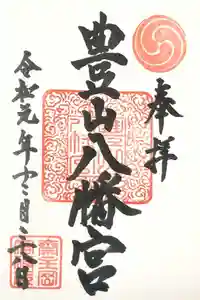 奉拝
豊山八幡宮
令和元年十二月二十八日